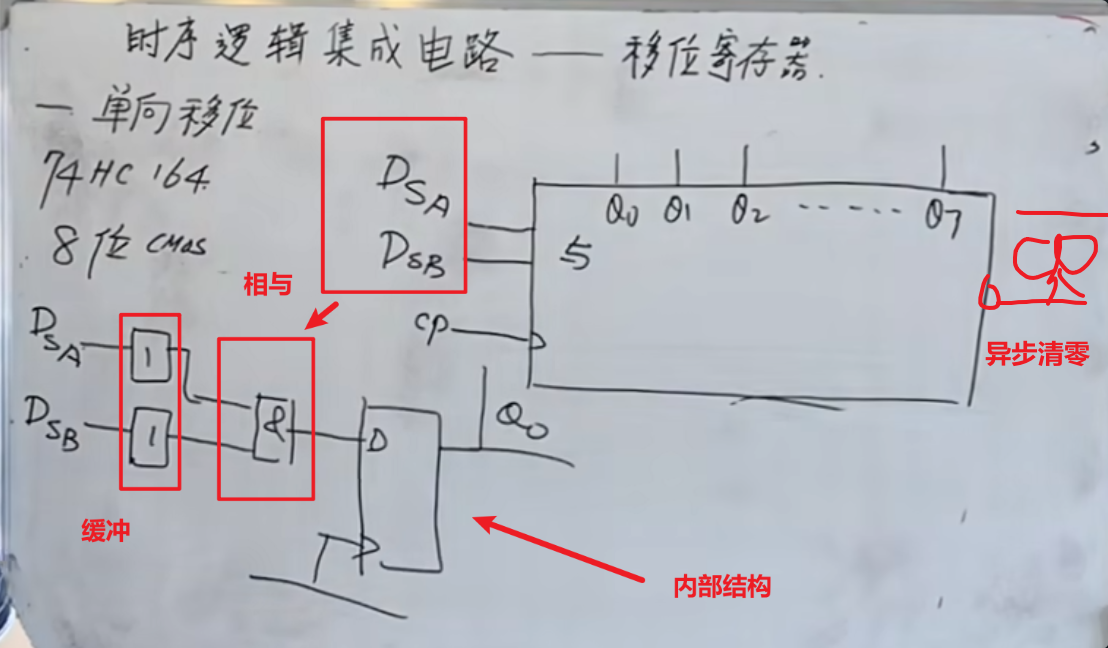 时序逻辑集成电路 —— 移位寄存器.
一 单向移位
74HC 164.
8位 CMOS
DSA
DSB
CP
Q0 Q1 Q2 ------ Q7
CR
异步清零
相与
DSA
DSB
1
1
&
D
Q0
缓冲
内部结构